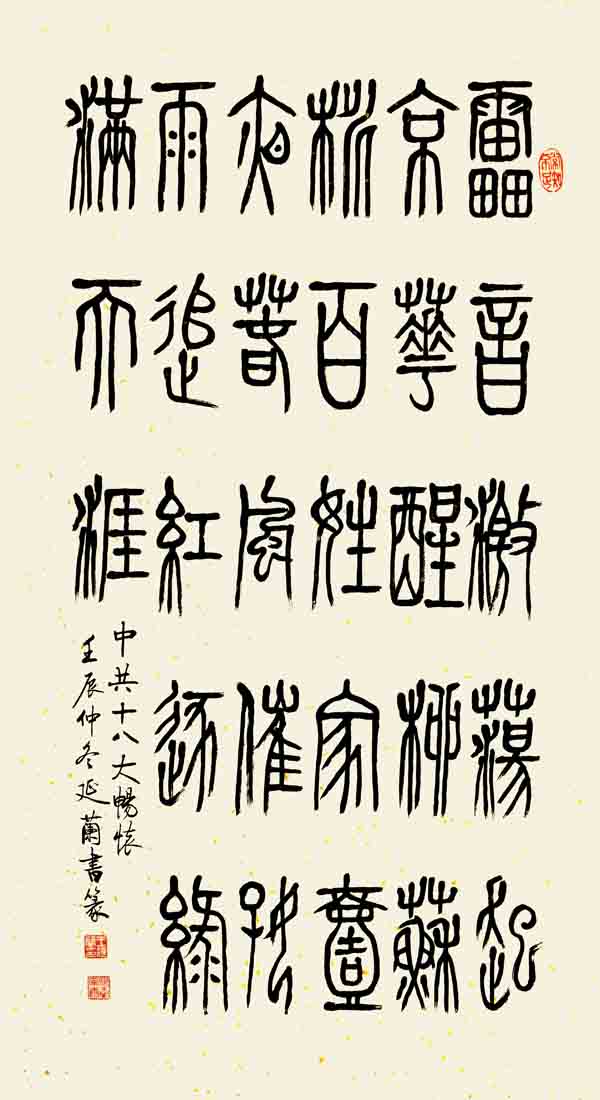 雷音激蕩起
京華醒柳蘇
桃百姓家壹
夜春風催好
雨追紅逐綠
滿天涯
中共十八大暢懷
壬辰仲冬延蘭書篆